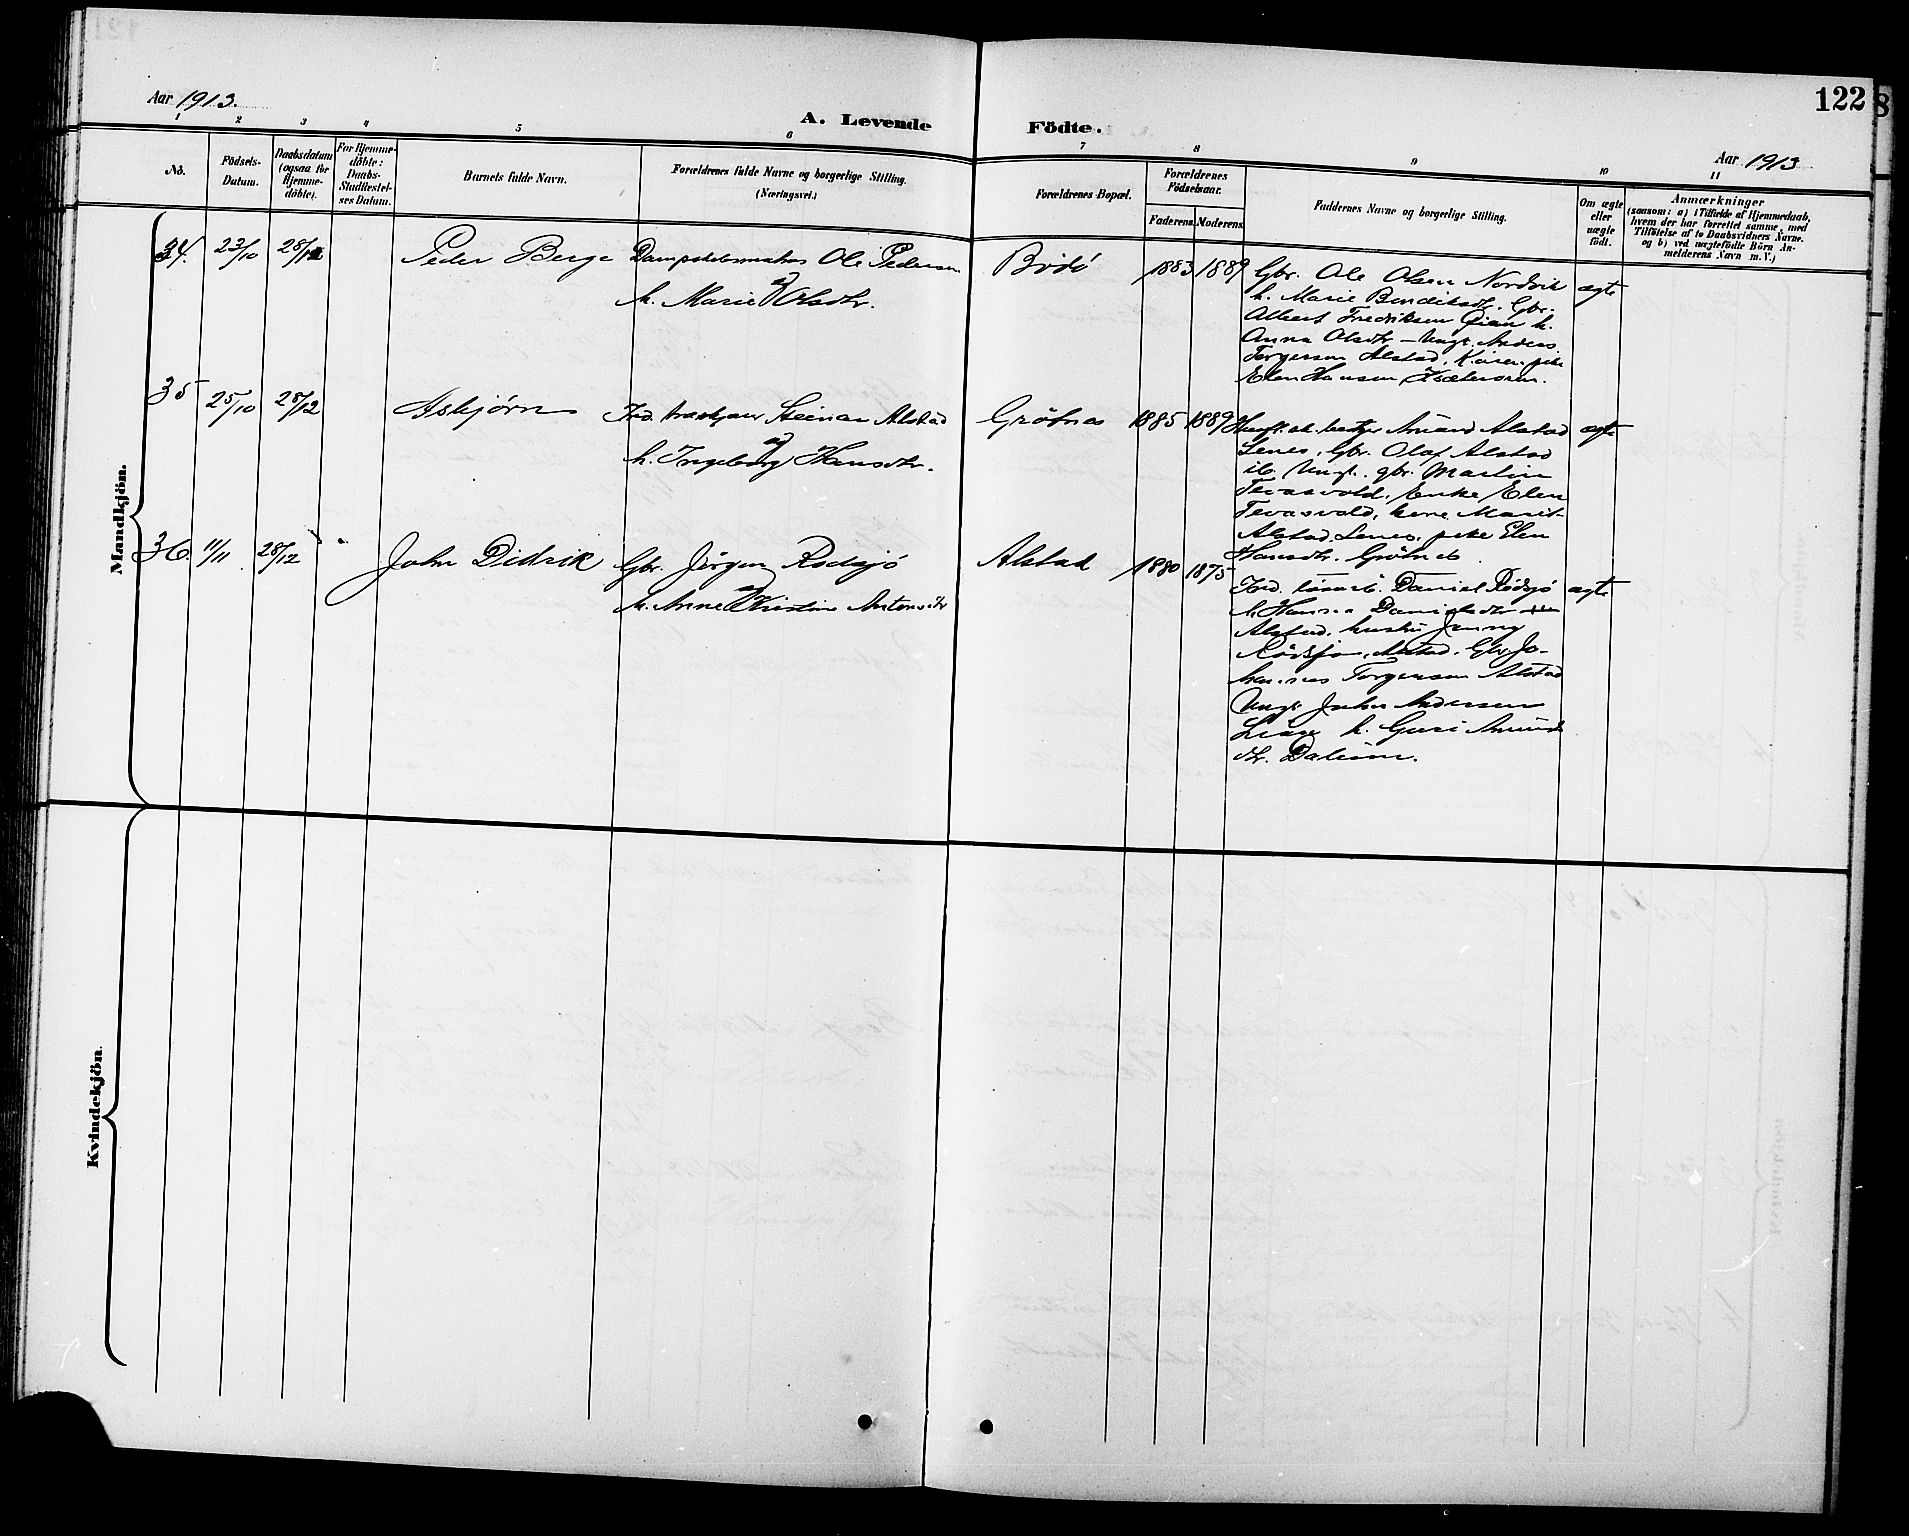 122
8
Aar 1913.
A. Levende
Födte.
Aar 1913
1 2 3 4 5 6 7 8 9 10 11
No.
Födsels-
Datum.
Daabsdatum
(ogsaa for
Hjemme-
döbte).
For Hjemme-
döbte:
Daabs-
Stadfæstel-
ses Datum.
Barnets fulde Navn.
Forældrenes fulde Navne og borgerlige Stilling.
(Næringsvei.)
Forældrenes Bopæl.
Forældrenes
Födselsaar.
Faderens
Moderens
Faddernes Navne og borgerlige Stilling.
Om ægte
eller
uægte
födt.
Anmærkninger
(saasom: a) i Tilfælde af Hjemmedaab,
hvem der har forrettet samme, med
Tilföielse af to Daabsvidners Navne.
og b) ved uægtefödte Börn An-
melderens Navn m.V.)
Mandkjön.
34. 23/10 28/12 Peder Berge
Ole Pedersen
h. Marie Olsdtr.
Bodö 1883 1889
Gbr. Ole Olsen Nordvik
h. Marie Bendiksdtr. Gbr.
Albert Fredriksen h.
Anna Olsdtr – Ungk. Anders
Torgersen Alstad, pike
Elen Hansen
ægte
35 25/10 28/12 Asbjørn
Steinar Alstad
og
h. Ingeborg Hansdtr.
Grötnes 1885 1889
Alstad
Lenes, Gbr. Olaf Alstad
ib. Ungk. gbr. Martin
Tevasvold, Enke Elen
Tevasvold, kone Marit
Alstad, Lenes, pike Elen
Hansdtr. Grötnes
ægte
36. 11/11 28/12 John Didrik
Gbr. Jörgen Rödsjö
og
h. Anne Kirstine Antonsdtr
Alstad 1880 1875
Daniel Rödsjö
h. Hansa Danielsdtr
Alstad, hustru Jenny
Rödsjö, Alstad. Gbr. Jo-
hannes Torgersen Alstad
Ungk. Johan Andersen
h. Guri Amund
dtr.
ægte
Kvindekjön.